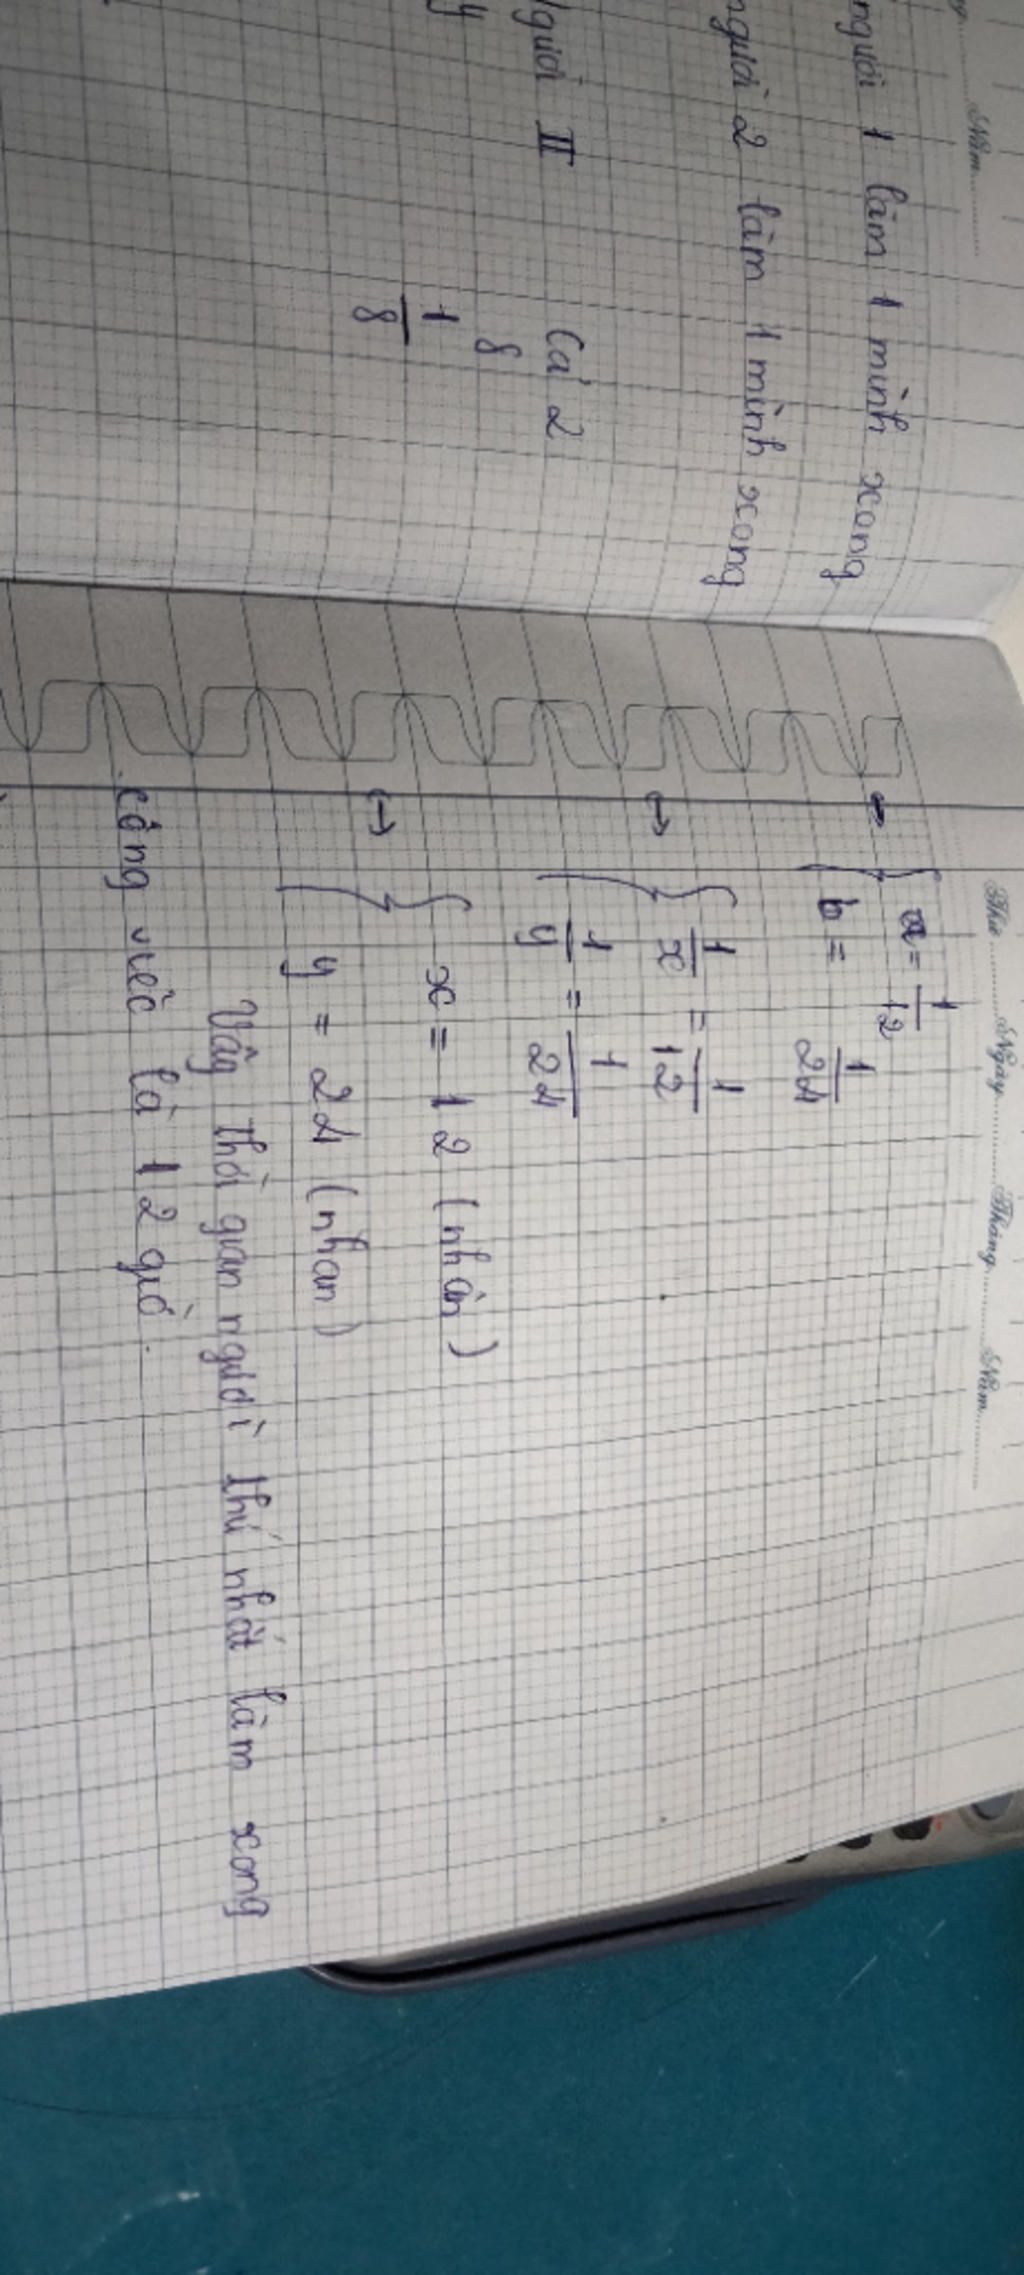 Năm
người 1 làm 1 mình xong
người 2 làm 1 mình xong
Người II Cả 2
y 8
1/8
Thứ Ngày Tháng Năm
→ { a = 1/12
b = 1/24
→ { 1/x = 1/12
1/y = 1/24
→ { x = 12 (nhận)
y = 24 (nhan)
Vậy thời gian người thứ nhất làm xong
công việc là 12 giờ.